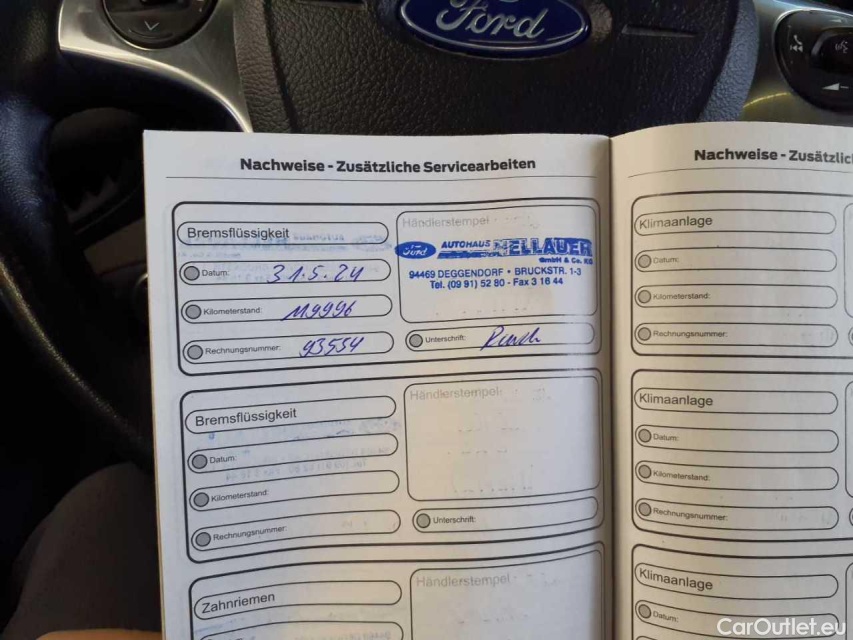 Ford
Nachweise - Zusätzliche Servicearbeiten
Bremsflüssigkeit
Händlerstempel
Ford AUTOHAUS HELLAUER
GmbH & Co. KG
94469 DEGGENDORF • BRUCKSTR. 1-3
Tel. (09 91) 52 80 - Fax 3 16 44
Datum: 31.5.24
Kilometerstand: 119996
Rechnungsnummer: 93554
Unterschrift:
Bremsflüssigkeit
Händlerstempel
Datum:
Kilometerstand:
Rechnungsnummer:
Unterschrift:
Zahnriemen
Händlerstempel
Nachweise -
Klimaanlage
Datum:
Kilometerstand:
Rechnungsnummer:
Klimaanlage
Datum:
Kilometerstand:
Rechnungsnummer:
Klimaanlage
Datum:
CarOutlet.eu